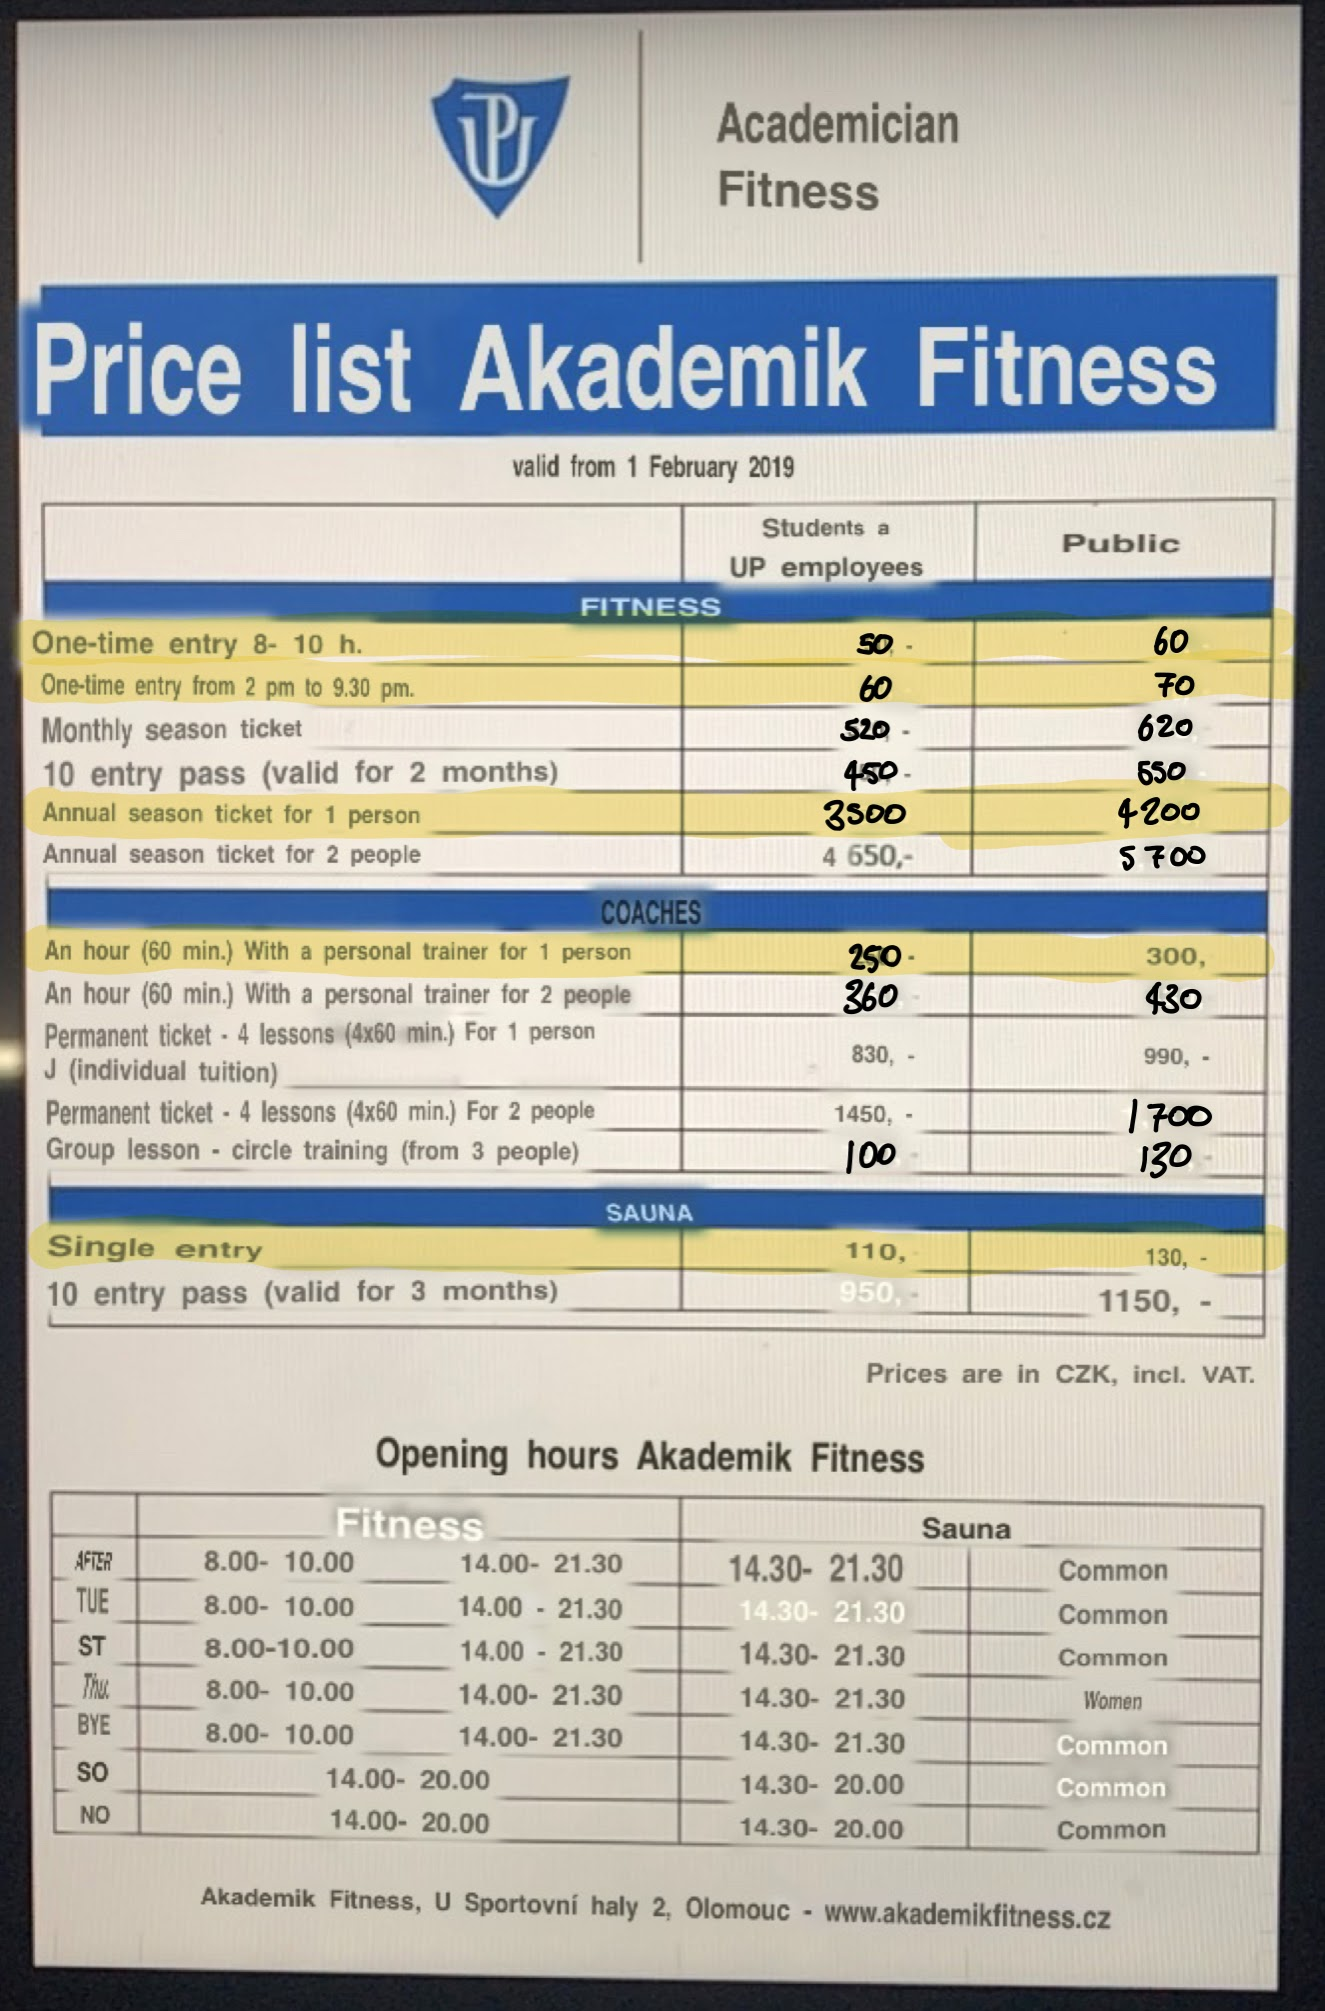 UP
Academician
Fitness
Price list Akademik Fitness
valid from 1 February 2019
Students a
UP employees
Public
FITNESS
One-time entry 8- 10 h. 50, - 60
One-time entry from 2 pm to 9.30 pm. 60 70
Monthly season ticket 520, - 620
10 entry pass (valid for 2 months) 450 - 550
Annual season ticket for 1 person 3500 4200
Annual season ticket for 2 people 4 650,- 5700
COACHES
An hour (60 min.) With a personal trainer for 1 person 250 - 300,
An hour (60 min.) With a personal trainer for 2 people 360 430
Permanent ticket - 4 lessons (4x60 min.) For 1 person
J (individual tuition) 830, - 990, -
Permanent ticket - 4 lessons (4x60 min.) For 2 people 1450, - 1700
Group lesson - circle training (from 3 people) 100 - 130 -
SAUNA
Single entry 110, 130, -
10 entry pass (valid for 3 months) 950, - 1150, -
Prices are in CZK, incl. VAT.
Opening hours Akademik Fitness
Fitness Sauna
AFTER 8.00- 10.00 14.00- 21.30 14.30- 21.30 Common
TUE 8.00- 10.00 14.00 - 21.30 14.30- 21.30 Common
ST 8.00-10.00 14.00 - 21.30 14.30- 21.30 Common
Thu. 8.00- 10.00 14.00- 21.30 14.30- 21.30 Women
BYE 8.00- 10.00 14.00- 21.30 14.30- 21.30 Common
SO 14.00- 20.00 14.30- 20.00 Common
NO 14.00- 20.00 14.30- 20.00 Common
Akademik Fitness, U Sportovní haly 2, Olomouc - www.akademikfitness.cz